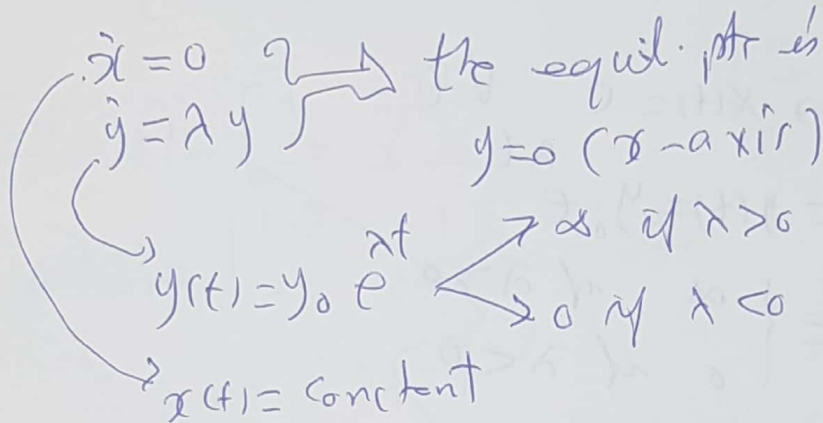 ẋ = 0 } ⇒ the equil. pts is
ẏ = λy
y=0 (x-axis)
y(t) = y₀ e^λt
∞ if λ>0
0 if λ<0
x(t) = constent